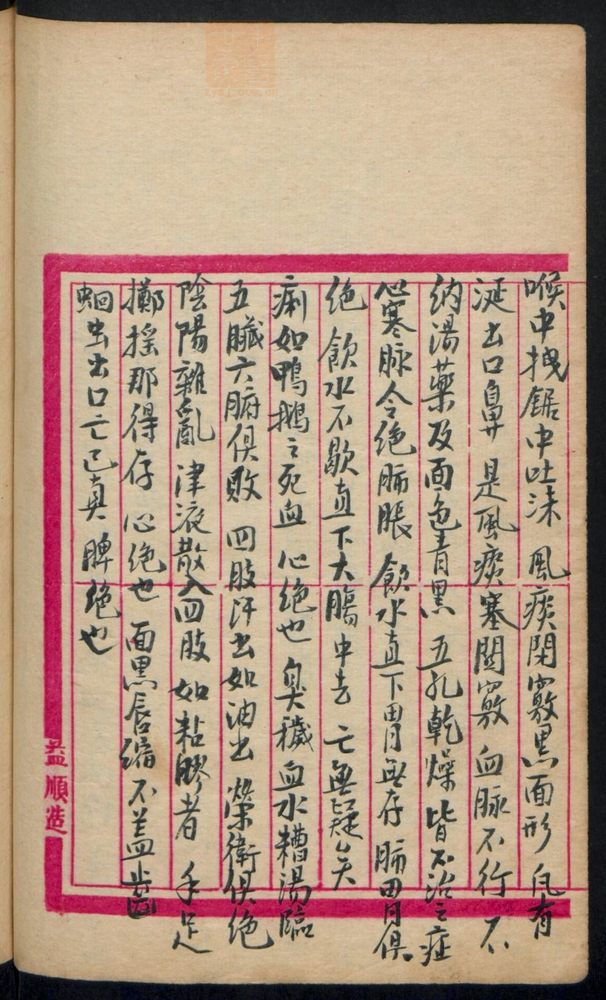 喉中拽鋸中吐沫 風痰閉竅黑面形 凡有
涎出口鼻 是風痰塞關竅 血脉不行 不
納湯藥及面色青黑 五孔乾燥皆不治之症
心寒脉令絶肺脹 飲水直下胃無存 肺胃俱
絶 飲水不歇直下大腸中去 亡無疑矣
痢如鴨鵝之死血 心絶也 臭穢血水糟湯臨
五臟六腑俱敗 四肢汗出如油出 榮衛俱絶
陰陽雜亂 津液散入四肢 如粘膠者 手足
擲摇那得存 心絶也 面黑唇縮不盖齒
蛔虫出口亡己真 脾絶也
益順造